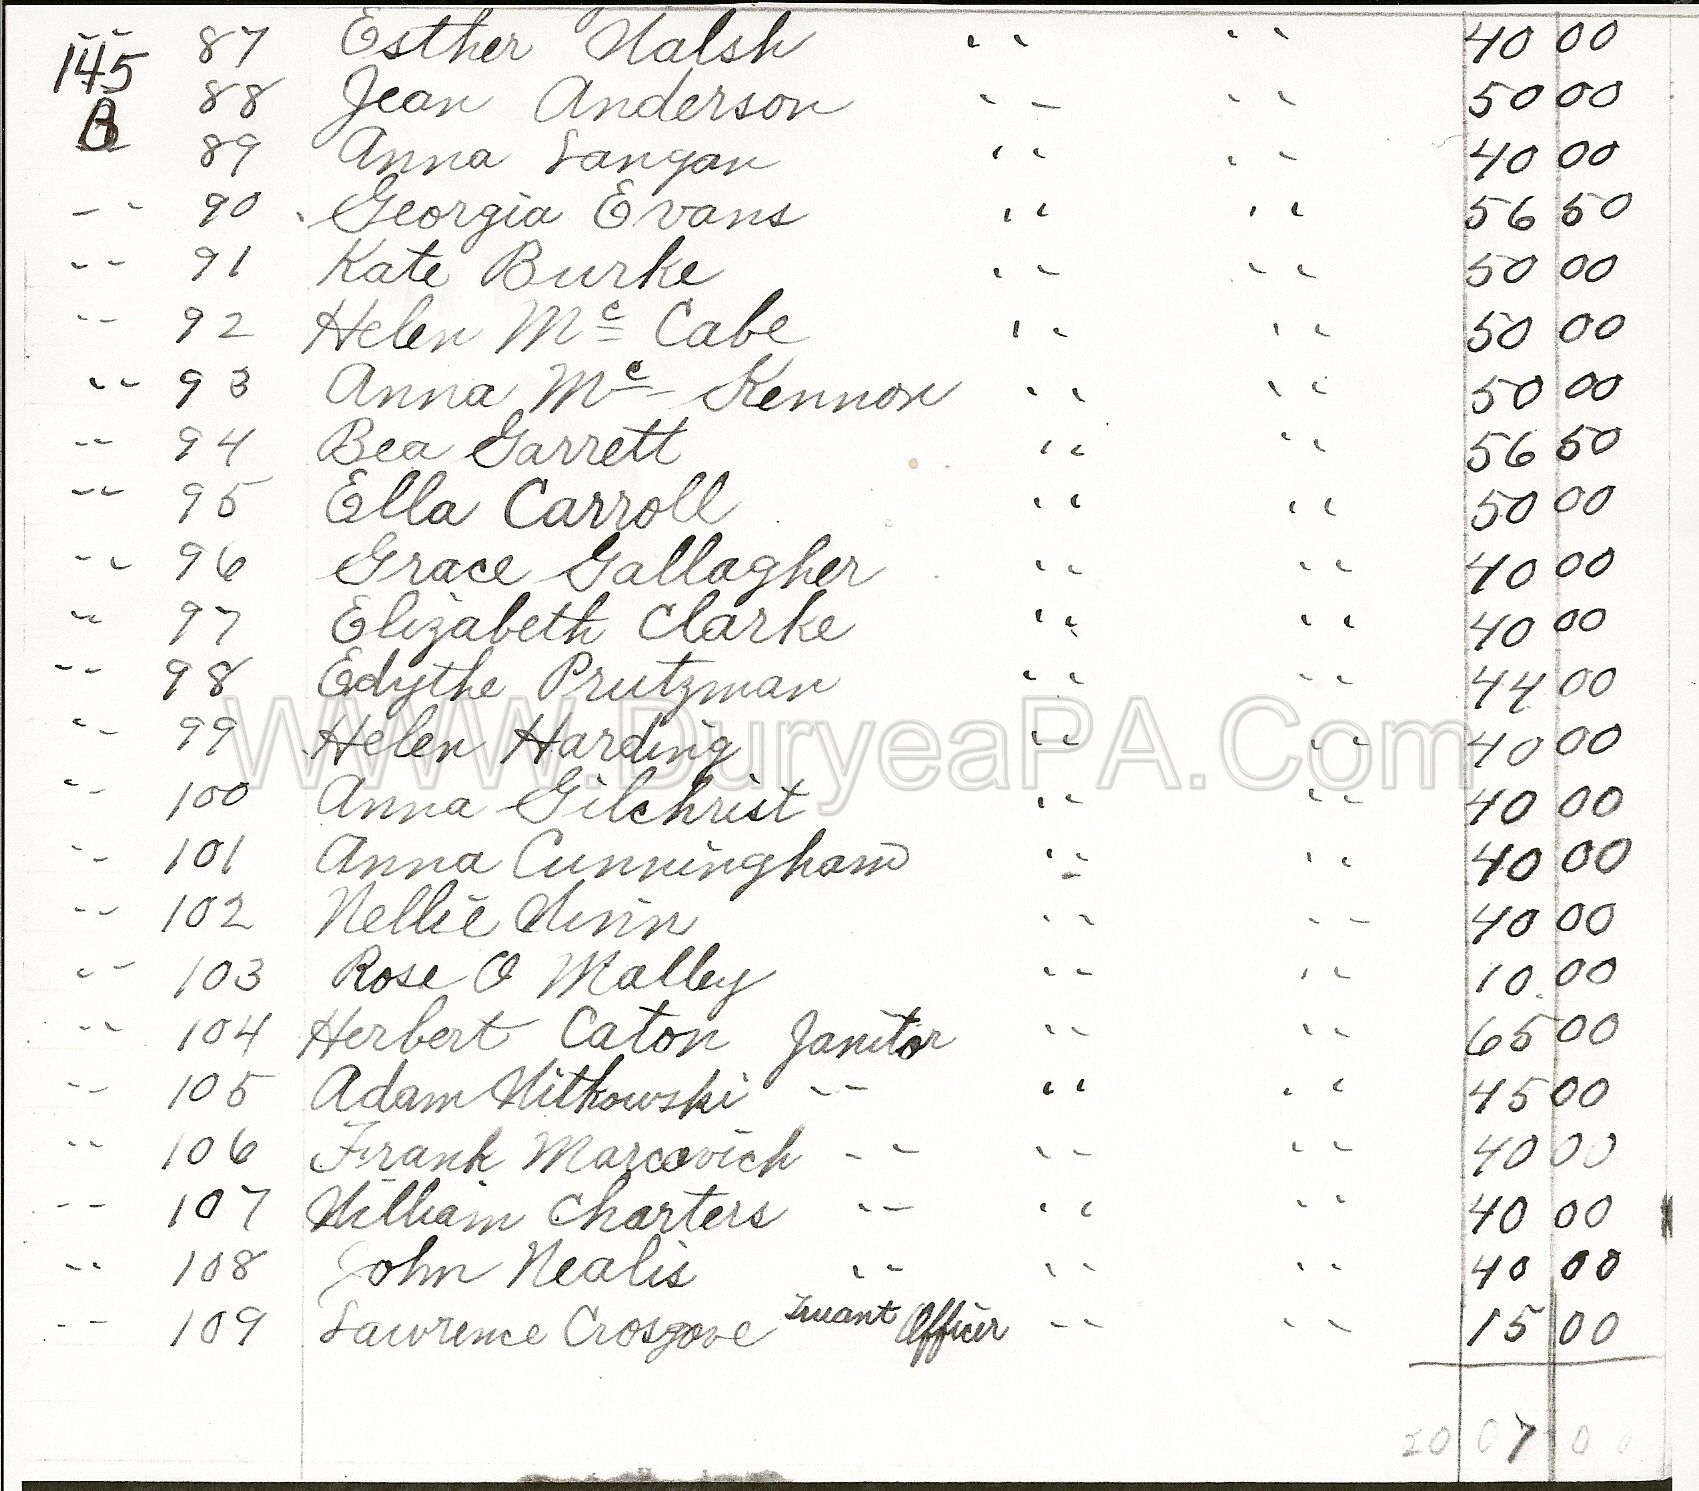 145 87 Esther Walsh '' '' 40 00
B 88 Jean Anderson '' '' 50 00
89 Anna Langan '' '' 40 00
'' 90 Georgia Evans '' '' 56 50
'' 91 Kate Burke '' '' 50 00
'' 92 Helen Mc Cabe '' '' 50 00
'' 93 Anna Mc Kennon '' '' 50 00
'' 94 Bea Garrett '' '' 56 50
'' 95 Ella Carroll '' '' 50 00
'' 96 Grace Gallagher '' '' 40 00
'' 97 Elizabeth Clarke '' '' 40 00
'' 98 Edythe Prutzman '' '' 44 00
WWW.DuryeaPA.Com
'' 99 Helen Harding '' '' 40 00
'' 100 Anna Gilchrist '' '' 40 00
'' 101 Anna Cunningham '' '' 40 00
'' 102 Nellie '' '' 40 00
'' 103 Rose O Malley '' '' 10.00
'' 104 Herbert Caton Janitor '' '' 65 00
'' 105 Adam Witkowski '' '' '' 45 00
'' 106 Frank Marcovich '' '' '' 40 00
'' 107 William Charters '' '' '' 40 00
'' 108 John Nealis '' '' '' 40 00
'' 109 Lawrence Crosgove Truant Officer '' '' 15 00
20 07 00